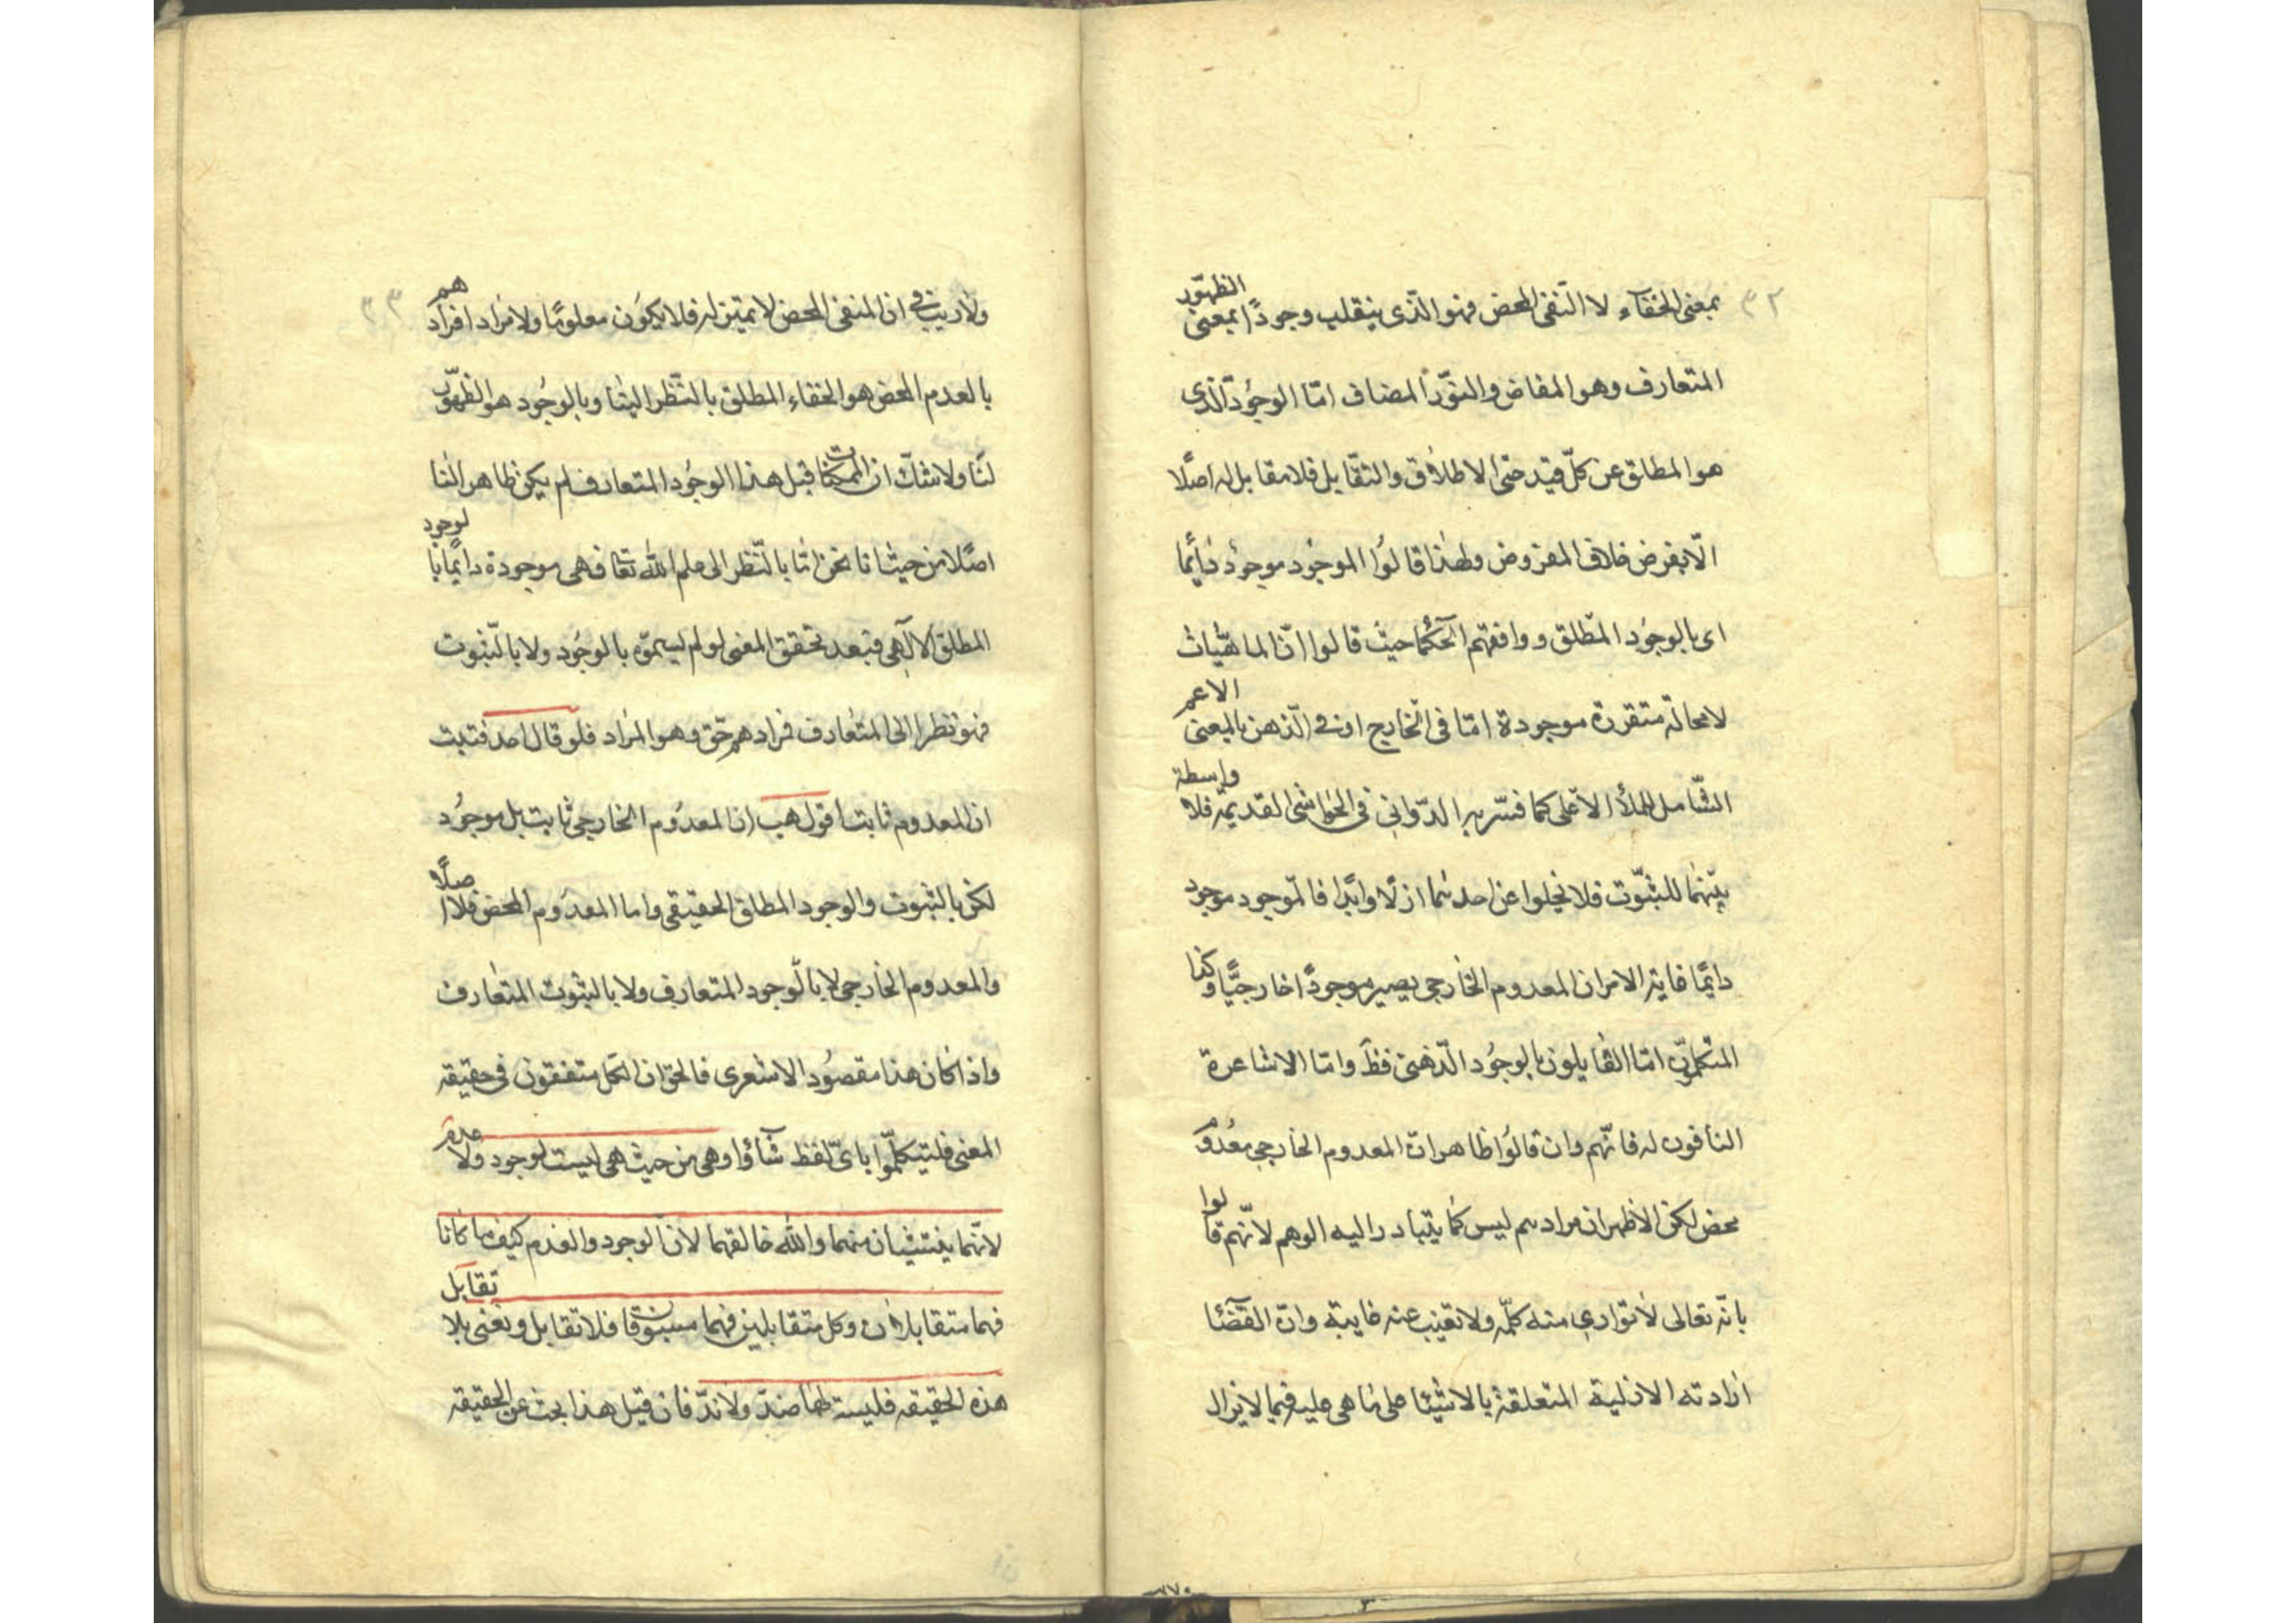 ٣٢
بمعنى الخفاء لا النفى المحض فهو الذى ينقلب وجودًا بمعنى الظهور
المتعارف وهو المفاض والنور المضاف امّا الوجود الذى
هو المطلق عن كلّ قيد حتى الاطلاق والتقابل فلا مقابل له اصلًا
الّا بفرض خلاف المفروض ولهذا قالوا الموجود موجود دائمًا
اى بالوجود المطلق ووافقهم الحكما حيث قالوا انّ الماهيّات
لامحالة متقررة موجودة امّا فى الخارج او فى الذهن بالمعنى الاعم
الشّامل للملأ الاعلى كما فسّر به الدّوانى فى الحواشى القديمة فلا واسطة
بينهما للثبوت فلا يخلوا عن احدهما ازلًا وابدًا فالموجود موجود
دايمًا غاية الامر ان المعدوم الخارجى يصير موجودًا خارجيًّا وكذا
المتكلمون امّا القايلون بالوجود الذهنى فظ وامّا الاشاعرة
النافون له فانّهم وان قالوا ظاهرا ان المعدوم الخارجى معدوم
محض لكن الاظهر ان مرادهم ليس كما يتبادر اليه الوهم لانّهم قالوا
بانّه تعالى لا توارى منه كلمة ولا تغيب عنه غايبة وانّ القضا
ارادته الازلية المتعلقة بالاشيا على ما هى عليه فيما لا يزال
٣٣
ولا ريب فى ان المنفى المحض لا تميز له فلا يكون معلومًا ولا مراد افرادهم
بالعدم المحض هو الخفاء المطلق بالنّظر الينا وبالوجود هو الظهور
لنا ولا شكّ ان الممكنات قبل هذا الوجود المتعارف لم يكن ظاهرا لنا
اصلًا من حيث انا نحن امّا بالنّظر الى علم الله تعا فهى موجودة دايمًا بالوجود
المطلق الالهى فبعد تحقق المعنى لو لم يسموّه بالوجود ولا بالثبوت
فهو نظرا الى المتعارف فمرادهم حق وهو المراد فلو قال احد فثبت
ان المعدوم ثابت اقول هب ان المعدوم الخارجى ثابت بل موجود
لكن بالثبوت والوجود المطلق الحقيقى واما المعدوم المحض فلا اصلًا
والمعدوم الخارجى لا بالوجود المتعارف ولا بالثبوت المتعارف
واذا كان هذا مقصود الاشعرى فالحق ان الكل متفقون فى حقيقه
المعنى فليتكلّموا باىّ لفظ شاؤا وهى من حيث هى ليست لوجود ولا عدم
لانّهما ينتشيان منهما والله خالقهما لانّ الوجود والعدم كيف ما كانا
فهما متقابلان وكل متقابلين فهما مسبوقان فلا تقابل ونعنى بلا تقابل
هذه الحقيقه فليست لها ضدّ ولا ندّ فان قيل هذا بحث عن الحقيقه